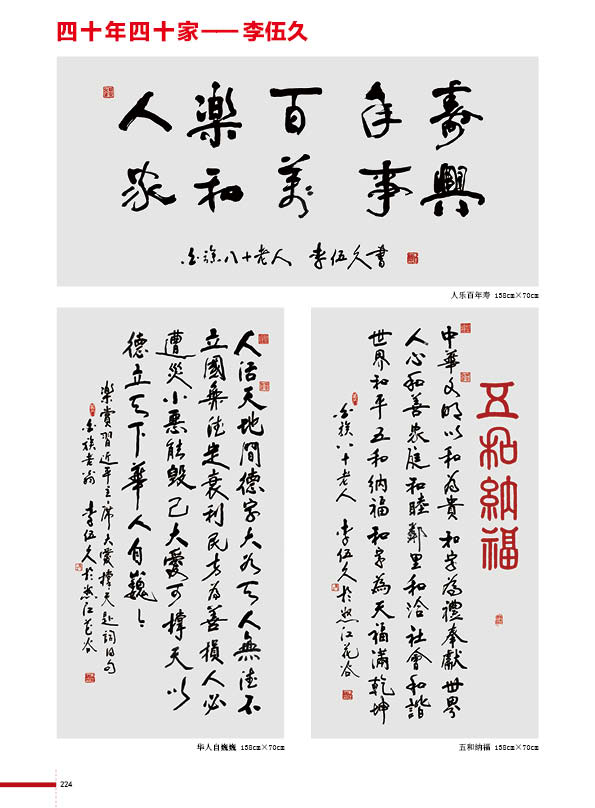 四十年四十家——李伍久
人樂百年壽
家和萬事興
白族八十老人 李伍久書
人乐百年寿 138cm×70cm
人活天地間德字大為天人無德不
立國棄德定衰利民者為善損人必
遭災小惡能毀己大愛可撐天以
德立天下華人自巍々
樂賞習近平主席大愛撐天
白族老翁 李伍久於怒江花谷
华人自巍巍 138cm×70cm
五和納福
中華文明以和為貴和字為禮奉獻世界
人心和善家庭和睦鄰里和洽社會和諧
世界和平五和納福和字為天福滿乾坤
白族八十老人 李伍久於怒江花谷
五和纳福 138cm×70cm
224